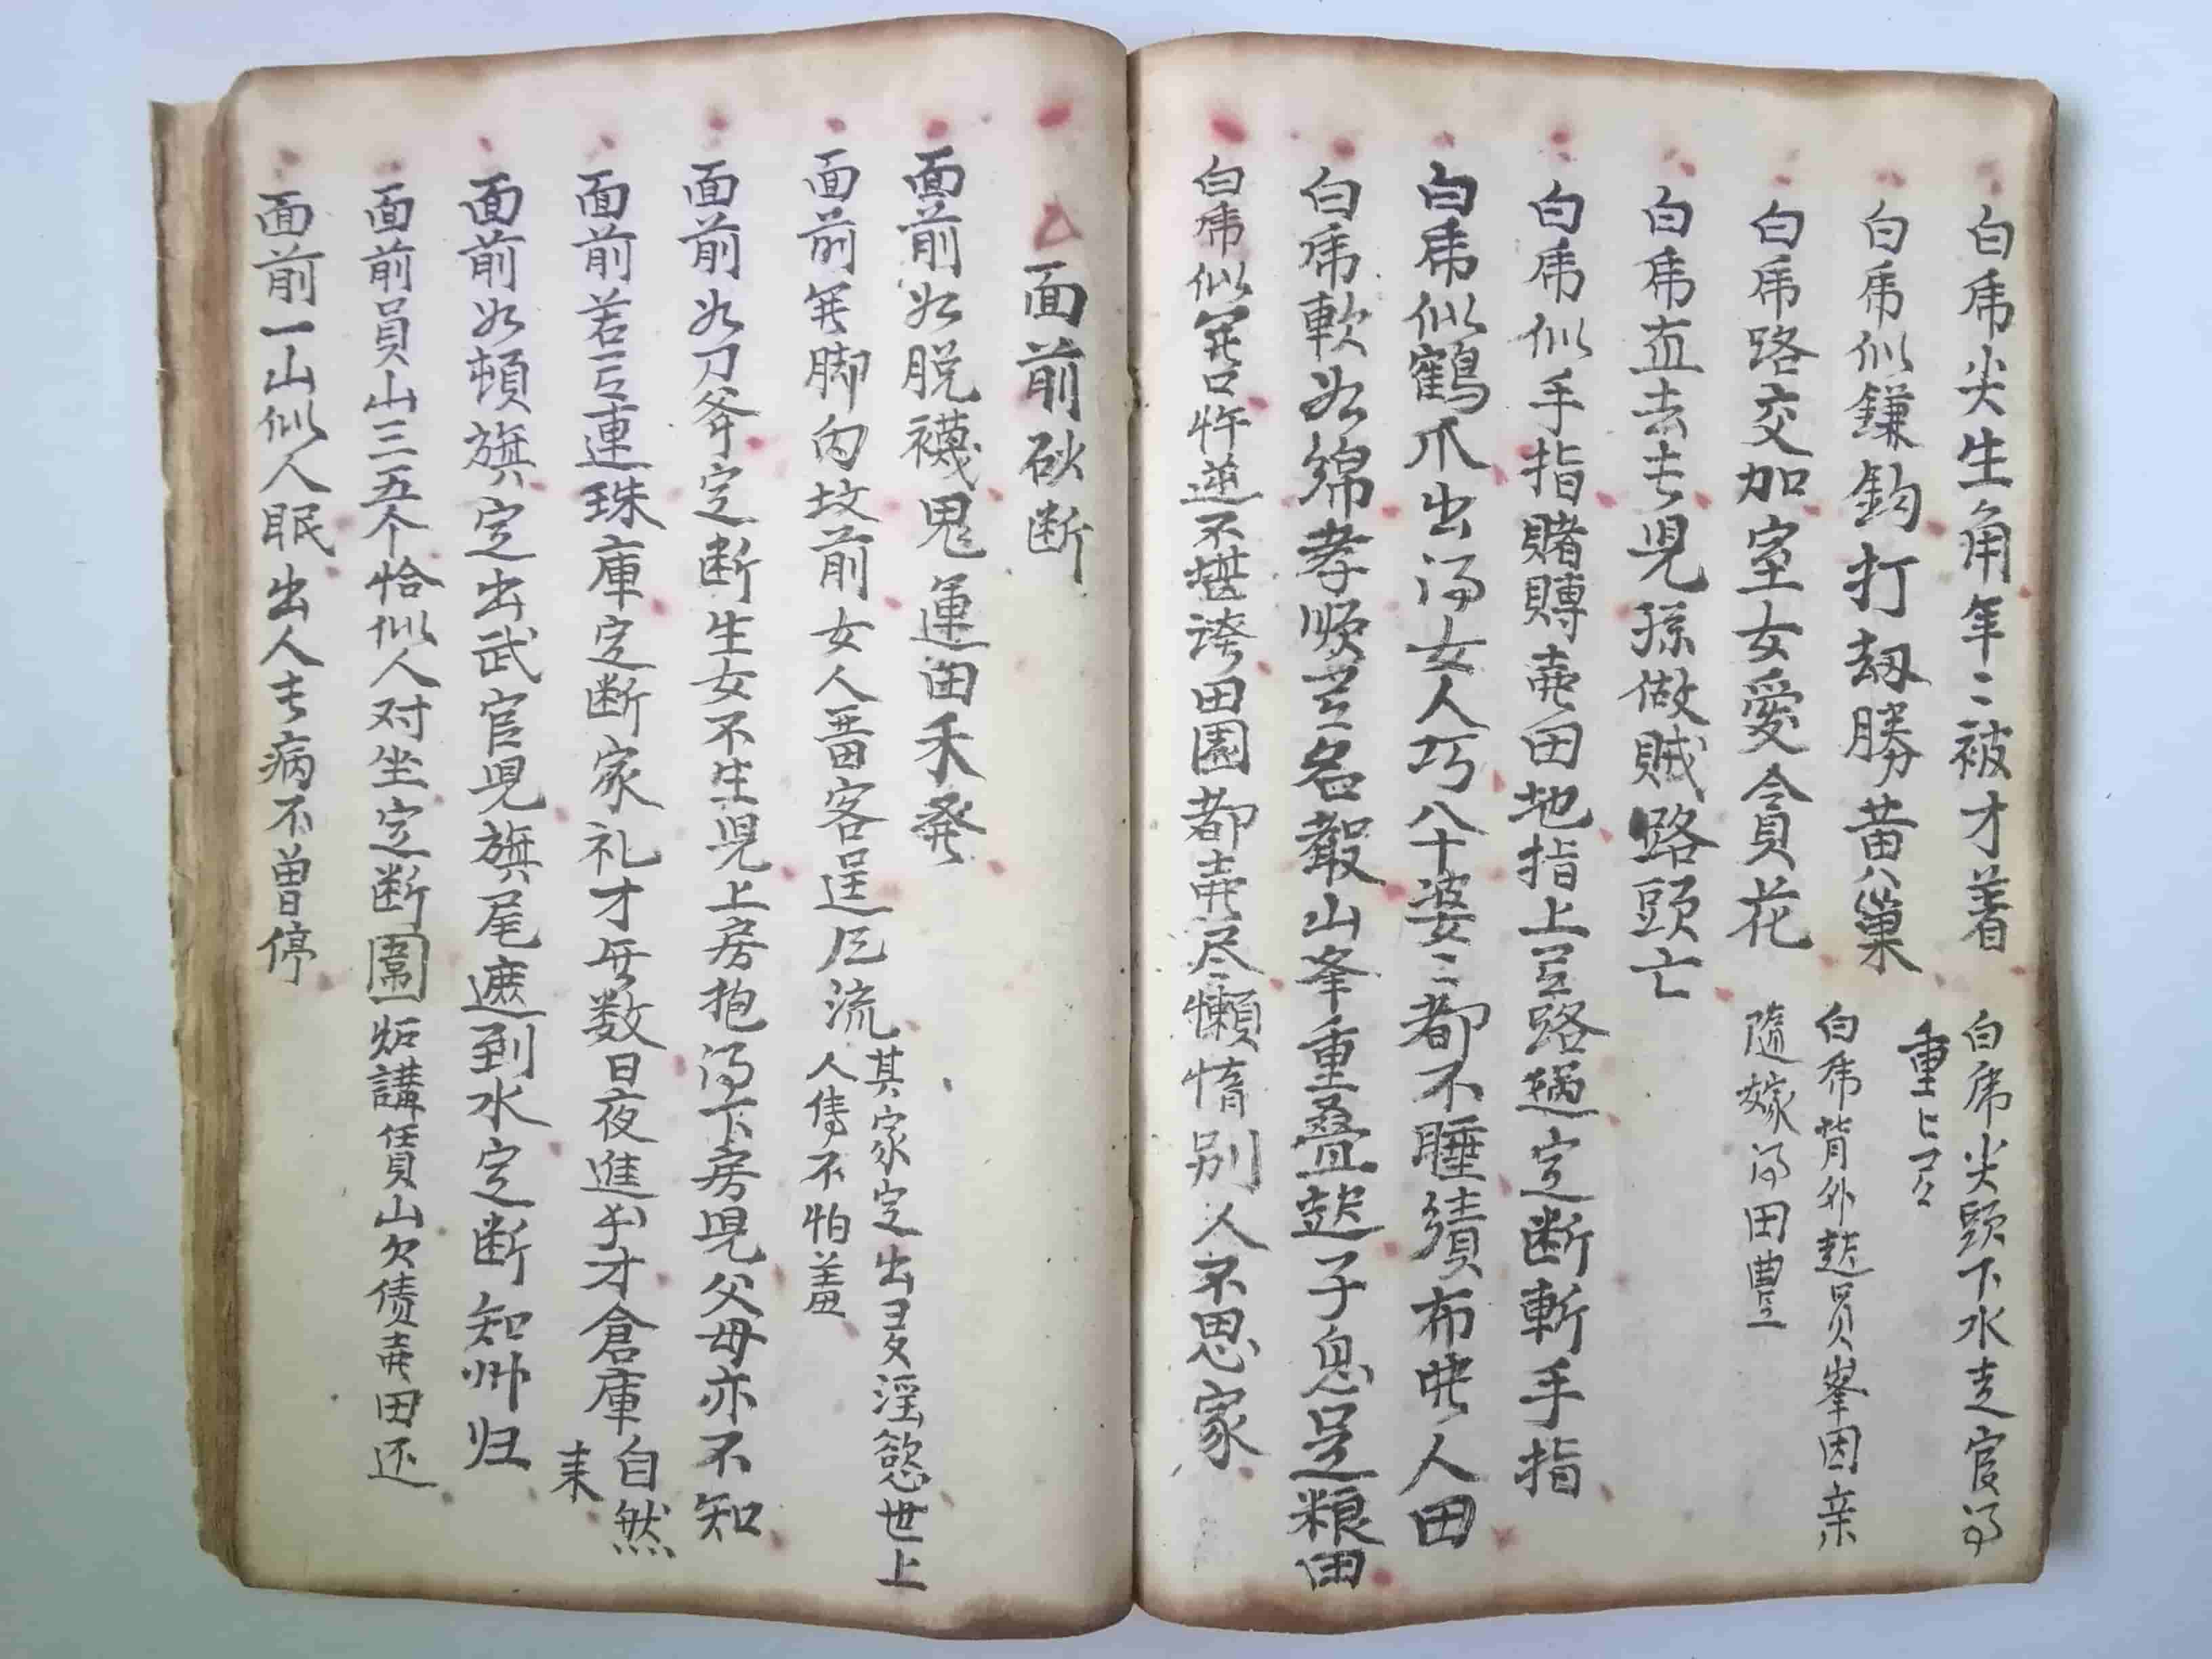 白虎尖生角年〻被才着
白虎尖頭下水走官司
重〻
白虎似鎌鈎打劫勝黄巢
白虎背外起员峯因亲
随嫁得田豊
白虎路交加室女愛貪花
白虎直去去児孫做賊路頭亡
白虎似手指賭賻賣田地指上豆路過定断斬手指
白虎似鶴爪出得女人巧八十婆〻都不睡績布典人田
白虎軟如綿孝順名山峯重叠起子息足粮田
白虎似開口忤逆不堪誇田園都賣尽懶惰别人不思家
面前砂断
面前如脱襪鬼運田禾發
面前開脚内坟前女人番客逞风流
其家定出淫慾世上
人傳不怕羞
面前如刀斧定断生女不生児上房抱得下房児父母亦不知
面前若連珠庫定断家礼才無数日夜進才倉庫
自然
来
面前如頓旗定出武官児旗尾遮到水定断知州归
面前員山三五个恰似人对坐定断圍炉講賃山欠债賣田还
面前一山似人眠出人病不曽停